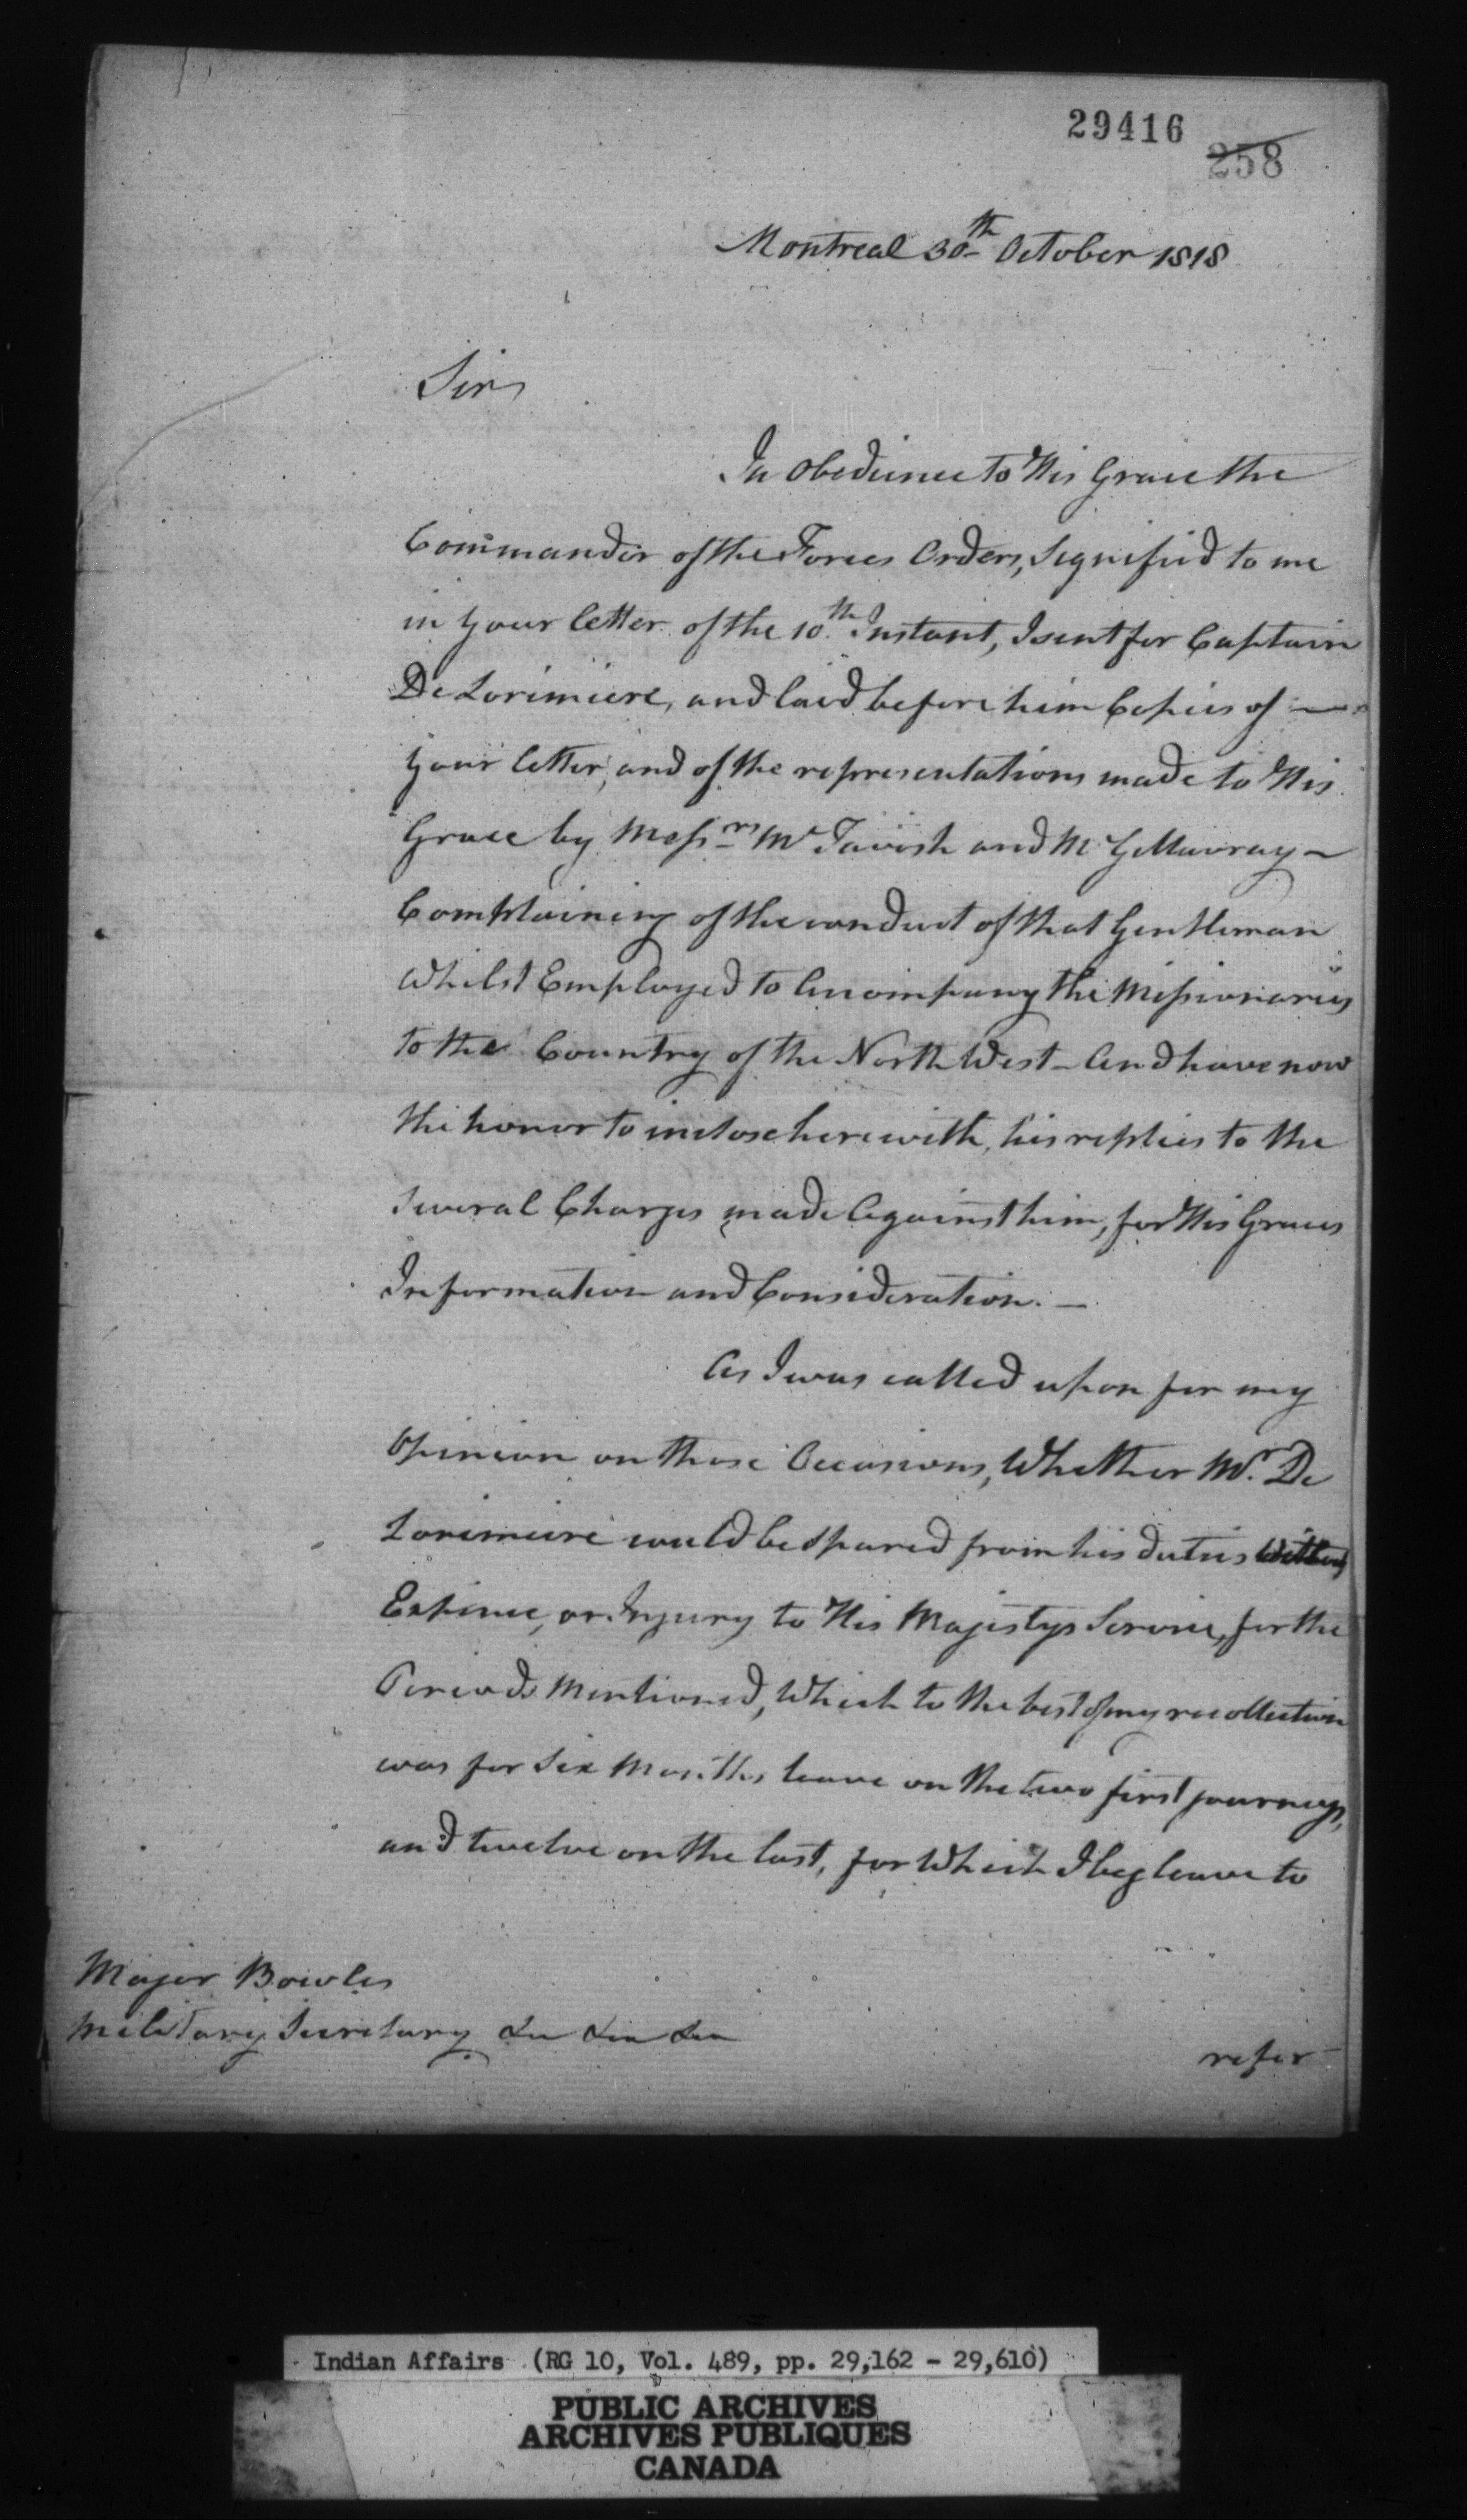 29416
258
Montreal 30th October 1818
Sir,
In obedience to His Grace the
Commander of the Forces Orders, Signified to me
in your letter of the 10th Instant, I sent for Captain
De Lorimiere, and laid before him Copies of —
your letter, and of the representations made to His
Grace by Messrs McTavish and McGillivray —
Complaining of the conduct of that Gentleman
Whilst Employed to Accompany the Missionaries
to the Country of the North West — And have now
the honor to inclose herewith, his replies to the
Several Charges made Against him, for His Graces
Information and Consideration. —
As I was called upon for my
Opinion on those Occasions, Whether Mr. De
Lorimiere could be spared from his duties Without
Expence, or Injury to His Majestys Service, for the
Periods Mentioned, Which to the best of my recollection
was for Six Months leave on the two first journeys,
and twelve on the last, for Which I beg leave to
Major Bowles
Military Secretary &c &c &c
refer
Indian Affairs (RG 10, Vol. 489, pp. 29,162 - 29,610)
PUBLIC ARCHIVES
ARCHIVES PUBLIQUES
CANADA